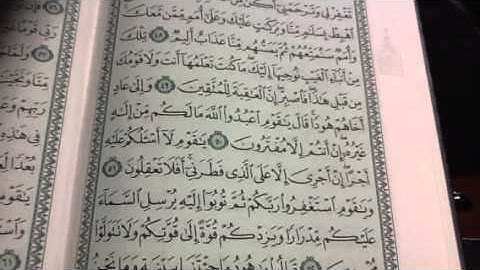 تَغْفِرْ لِى وَتَرْحَمْنِىٓ أَكُن
ٱهْبِطْ بِسَلَٰمٍ مِّنَّا وَبَرَكَٰتٍ عَلَيْكَ وَعَلَىٰٓ أُمَمٍ مِّمَّن مَّعَكَ
وَأُمَمٌ سَنُمَتِّعُهُمْ ثُمَّ يَمَسُّهُم مِّنَّا عَذَابٌ أَلِيمٌ ٤٨ تِلْكَ
مِنْ أَنۢبَآءِ ٱلْغَيْبِ نُوحِيهَآ إِلَيْكَ مَا كُنتَ تَعْلَمُهَآ أَنتَ وَلَا قَوْمُكَ
مِن قَبْلِ هَٰذَا فَٱصْبِرْ إِنَّ ٱلْعَٰقِبَةَ لِلْمُتَّقِينَ ٤٩ وَإِلَىٰ عَادٍ
أَخَاهُمْ هُودًا قَالَ يَٰقَوْمِ ٱعْبُدُوا۟ ٱللَّهَ مَا لَكُم مِّنْ إِلَٰهٍ
غَيْرُهُۥٓ إِنْ أَنتُمْ إِلَّا مُفْتَرُونَ ٥٠ يَٰقَوْمِ لَآ أَسْـَٔلُكُمْ عَلَيْهِ
أَجْرًا إِنْ أَجْرِىَ إِلَّا عَلَى ٱلَّذِى فَطَرَنِىٓ أَفَلَا تَعْقِلُونَ ٥١
وَيَٰقَوْمِ ٱسْتَغْفِرُوا۟ رَبَّكُمْ ثُمَّ تُوبُوٓا۟ إِلَيْهِ يُرْسِلِ ٱلسَّمَآءَ
عَلَيْكُم مِّدْرَارًا وَيَزِدْكُمْ قُوَّةً إِلَىٰ قُوَّتِكُمْ وَلَا تَتَوَلَّوْا۟
قَالُوا۟ يَٰهُودُ مَا جِئْتَنَا بِبَيِّنَةٍ وَمَا نَحْنُ